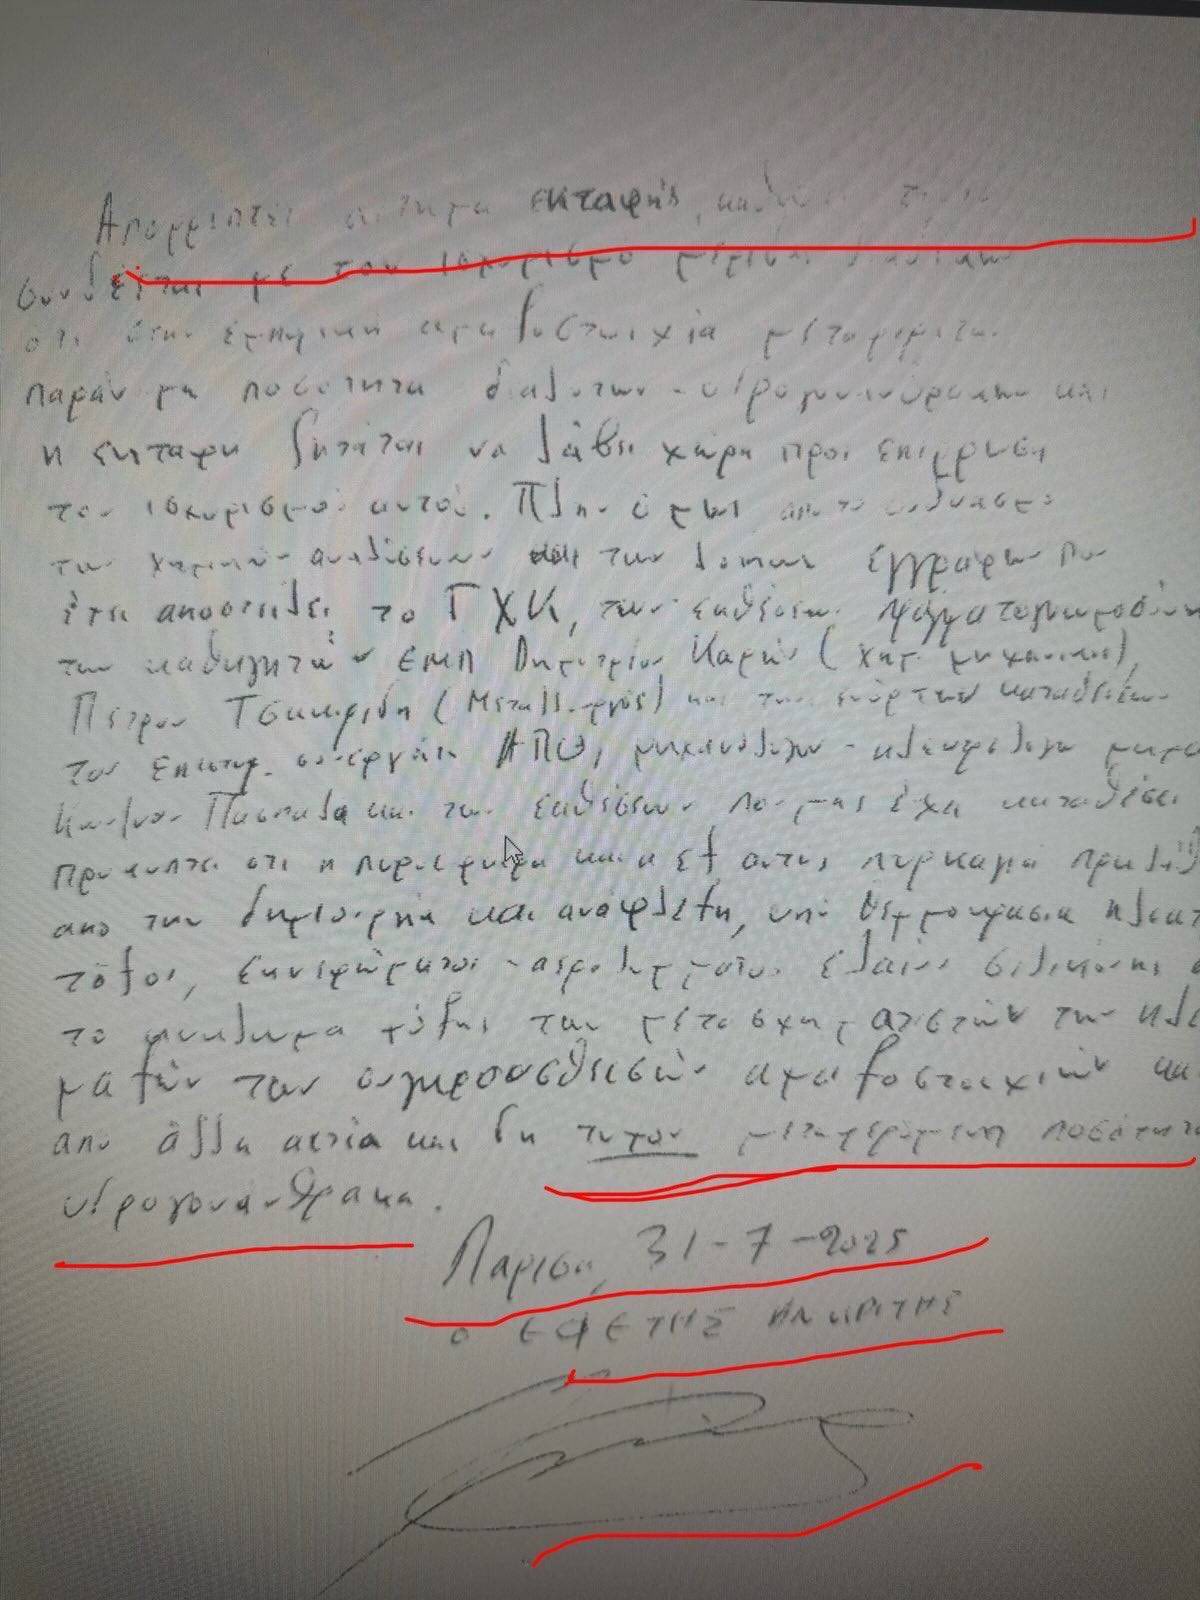 Απορρίπτει αίτημα εκταφής, καθώς
συνδέεται με τον ισχυρισμό μερίδας
ότι στην εμπορική αμαξοστοιχία μεταφέρετο
παράνομη ποσότητα διαλυτών - υδρογονανθράκων και
η εκταφή ζητάται να λάβει χώρα προς επίρρωση
του ισχυρισμού αυτού. Πλην όμως από το συνδυασμό
των χημικών αναλύσεων και των λοιπών εγγράφων που
έχει αποστείλει το ΓΧΚ, των εκθέσεων πραγματογνωμοσύνης
των καθηγητών ΕΜΠ Δημητρίου Καρώνη (χημ. μηχανικού),
Πέτρου Τσακιρίδη (Μεταλλειολόγου) και των ενόρκων καταθέσεων
του επιστημ. συνεργάτη ΑΠΘ, μηχανολόγου - ηλεκτρολόγου μηχ
Κων/νου Πασπαλά και των εκθέσεων που μας έχει καταθέσει
προκύπτει ότι η πυρόσφαιρα και η εξ αυτής πυρκαγιά προήλθ
από την δημιουργία και ανάφλεξη, υπό θερμοκρασία ηλεκτ
τόξου, εκνεφώματος - αερολύματος ελαίων σιλικόνης
το κύκλωμα ψύξης των μετασχηματιστών των ηλε
μαξών των συγκρουσθεισών αμαξοστοιχιών και
από άλλη αιτία και δη τυχόν μεταφερόμενη ποσότητα
υδρογονάνθρακα.
Λάρισα, 31-7-2025
Ο ΕΦΕΤΗΣ ΑΝΑΚΡΙΤΗΣ